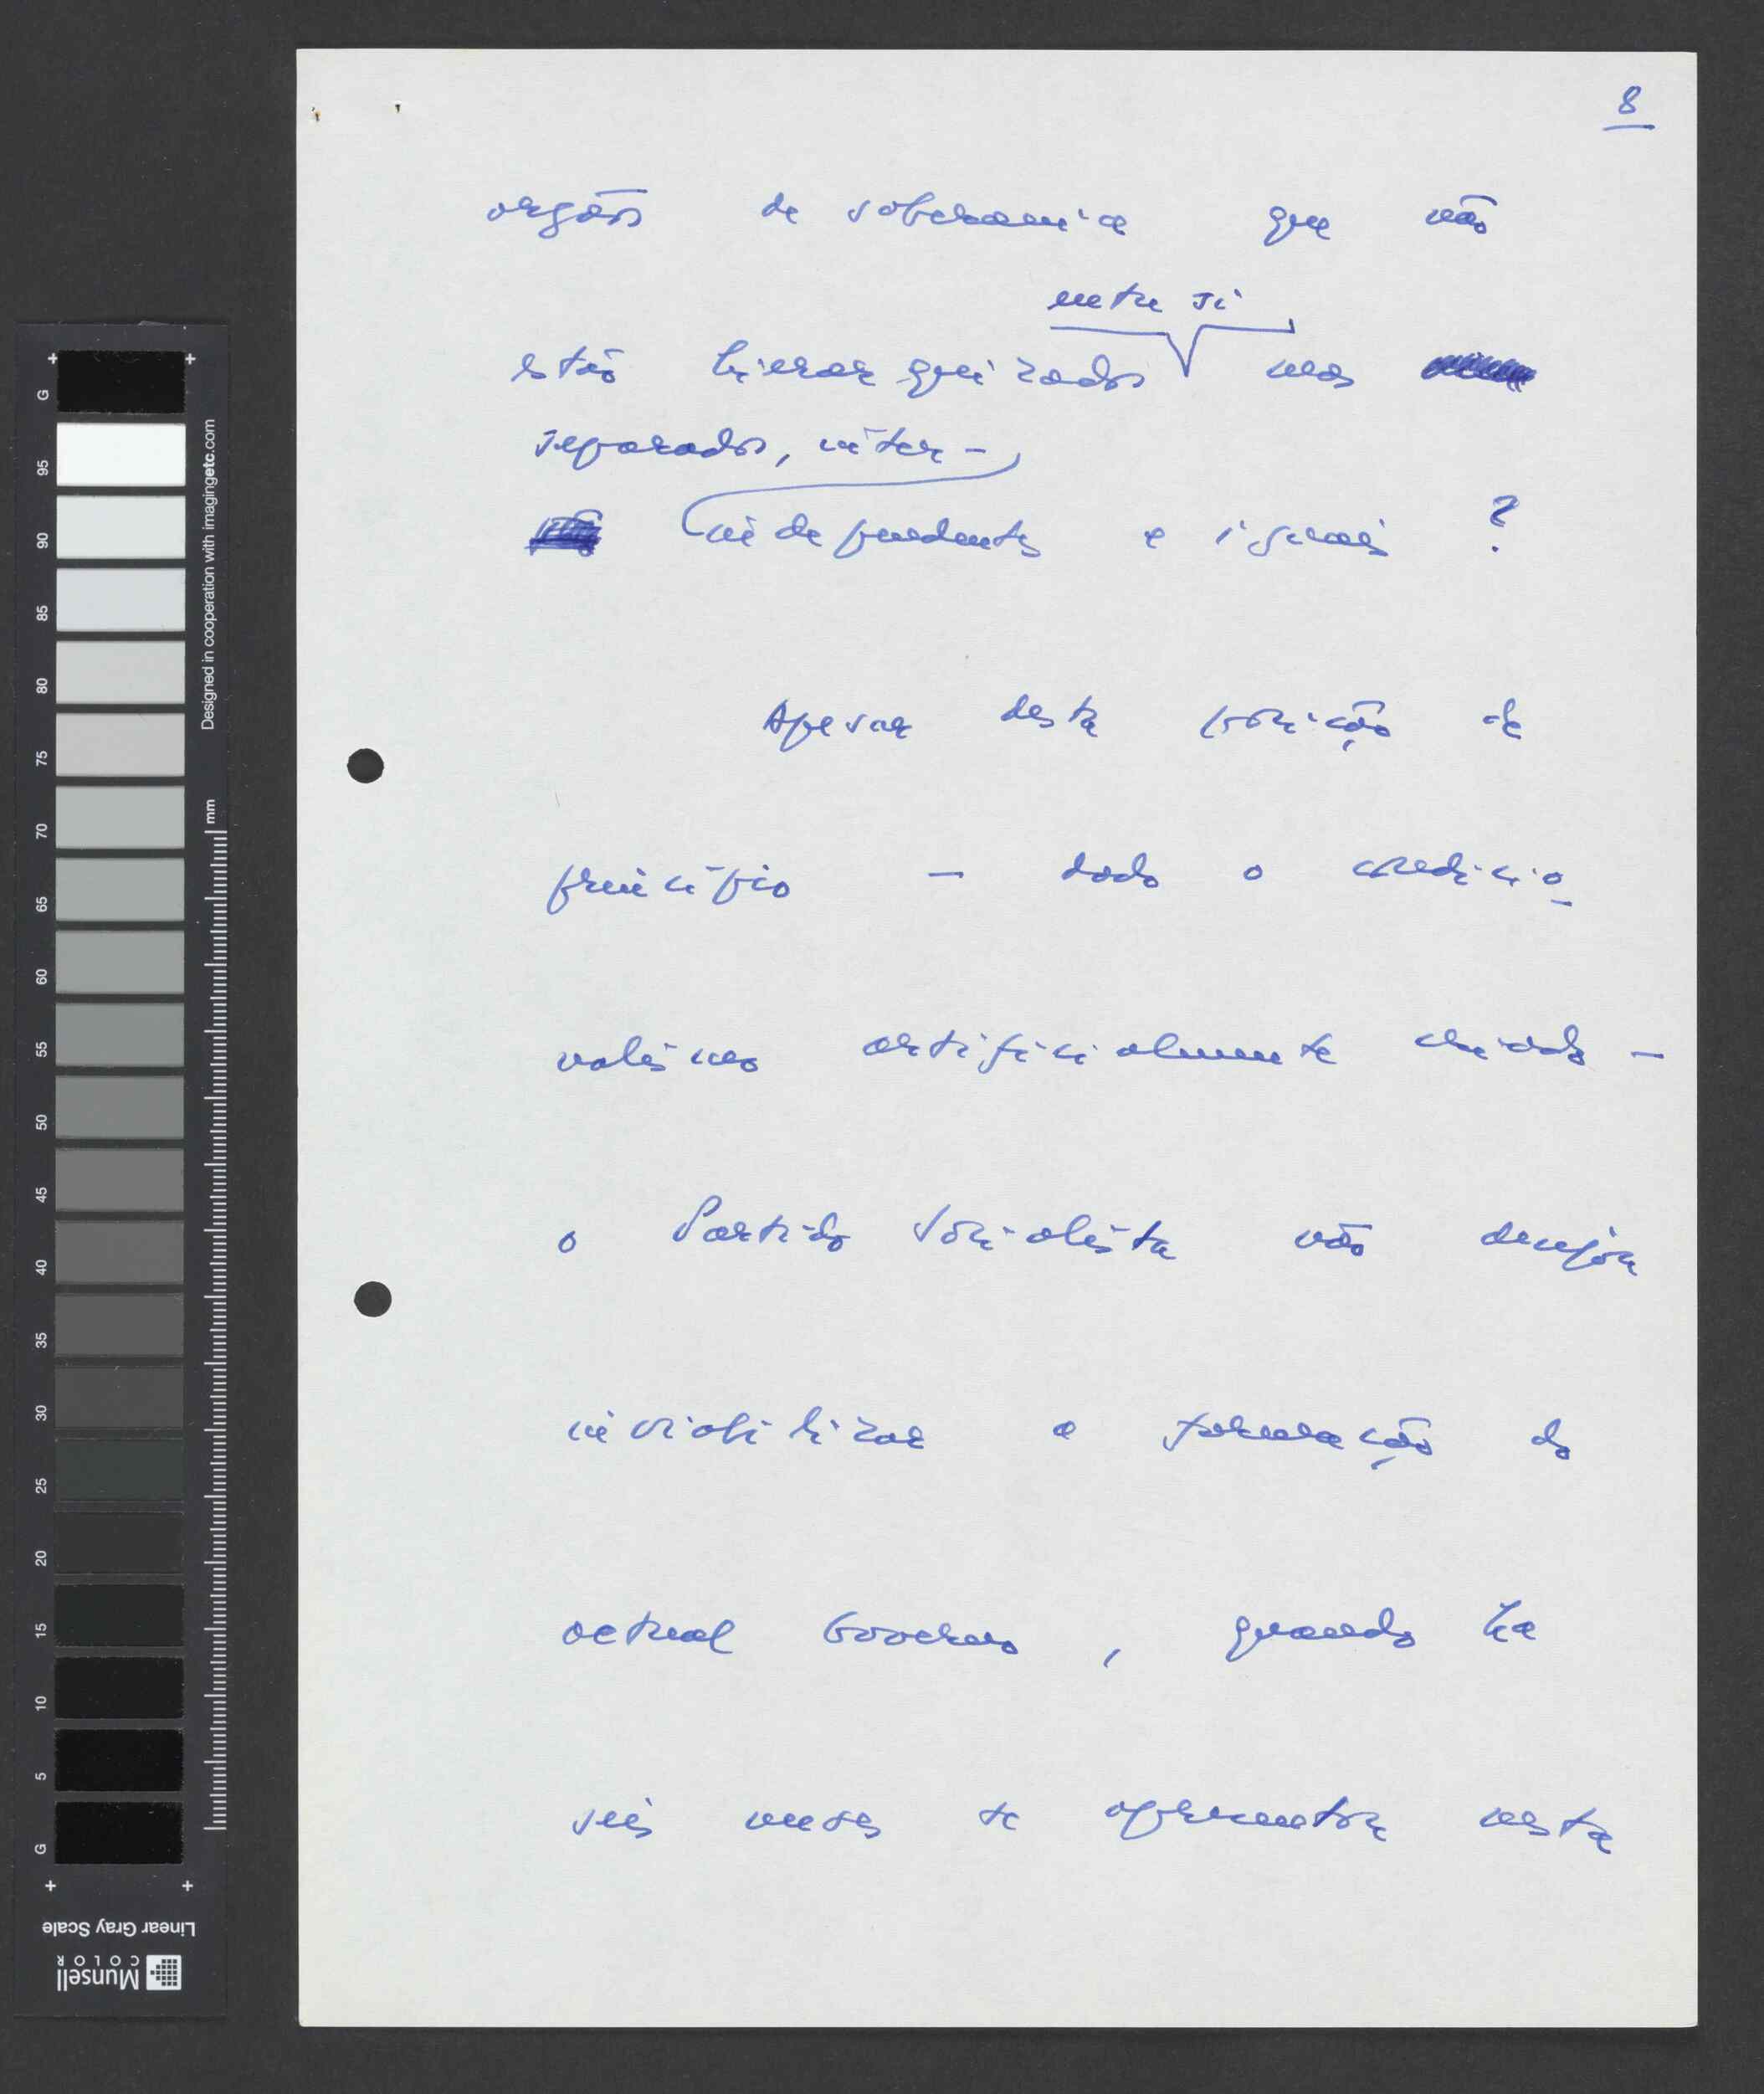 8
orgãos de soberania que não
entre si
estão hierarquizados mas
separados, inter-
independentes e iguais ?
Apesar desta posição de
princípio — dado o condicio
nalismo artificialmente criado —
o Partido Socialista não desejou
inviabilizar a formação do
actual Governo , quando há
seis meses se apresentou nesta
G 95 90 85 80 75 70 65 60 55 50 45 40 35 30 25 20 15 10 5 G
Designed in cooperation with imagingetc.com
mm
Linear Gray Scale
Munsell
COLOR